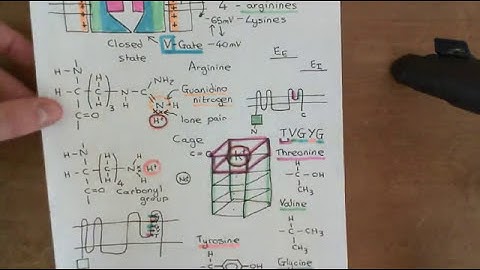 4 - arginines
-65mV - Lysines
Closed state
V-Gate -40mV
EE
EI
Arginine
H-N
H-C-(C)3-N-C
C=O
NH2
N-H
H+
Guanidino nitrogen
lone pair
N
TVGYG
Cage
C=O
K+
Threonine
H-C-OH
CH3
H-N
H-C-(C)4-N
C=O
H+
Na+
Carbonyl group
Valine
H-C-CH3
CH3
Tyrosine
H-C
OH
Glycine